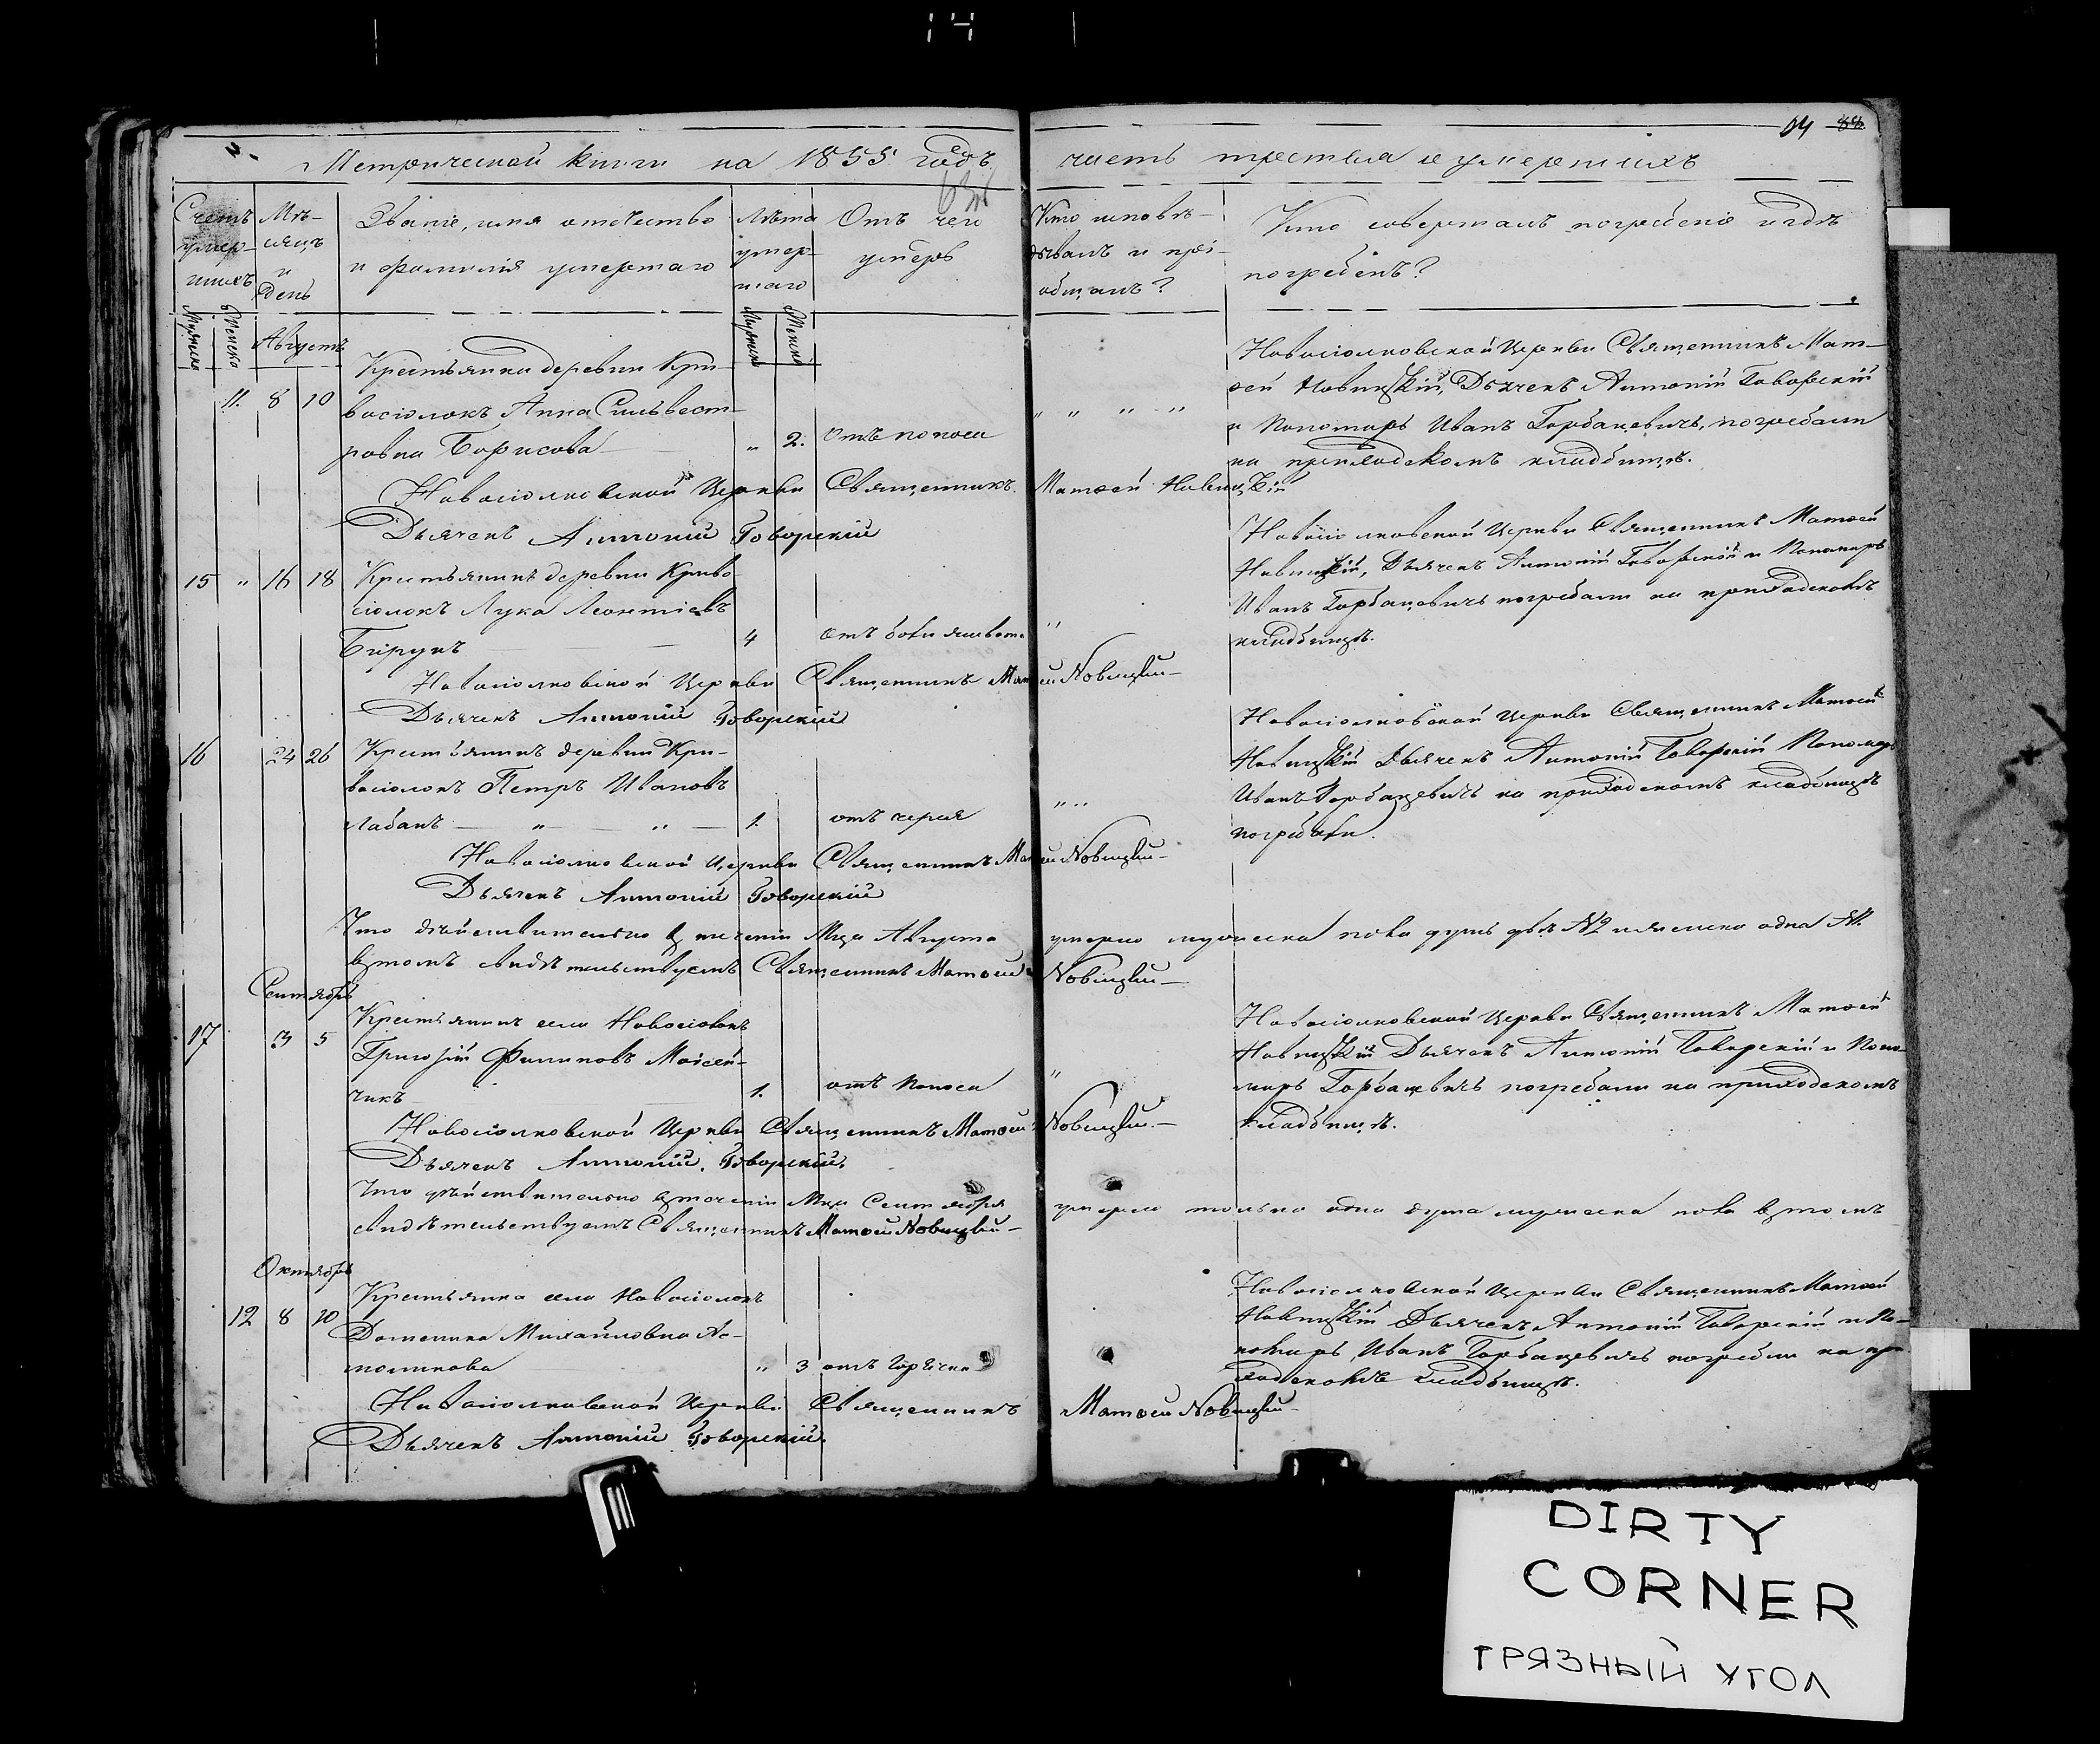 14
14 88
Метрической книги на 1855 годъ часть третья о умершихъ
Счетъ умер-шихъ
Мѣ-сяцъ и день
Званіе, имя отчество
и фамилія умершаго
Лѣта умер-шаго
Отъ чего
умеръ
Кто исповѣ-
дывалъ и прі-
общалъ?
Кто совершалъ погребеніе и гдѣ
погребенъ?
Мужеска
Женска
Мужеска
Женска
Августъ
Крестьянка деревни Кри-
11. 8 10 восіолокъ Анна Сильвест-
ровна Борисова „ 2. отъ поноса
„ „ „ „
Новосіолковской Церкви Священникъ Мат-
ѳей Новицкій, Дьячекъ Антоній Говорскій
и Пономарь Иванъ Горбацевичъ, погребали
на приходскомъ кладбищѣ.
Новосіолковской Церкви Священникъ Матѳей Новицкій
Дьячекъ Антоній Говорскій
15 „ 16 18 Крестьянинъ деревни Криво-
сіолокъ Лука Леонтіевъ
Бирукъ 4 отъ боли живота „
Новосіолковской Церкви Священникъ Матѳей
Новицкій, Дьячекъ Антоній Говорскій и Пономарь
Иванъ Горбацевичъ погребали на приходскомъ
кладбищѣ.
Новосіолковской Церкви Священникъ Матѳей Новицкій
Дьячекъ Антоній Говорскій
16 24 26 Крестьянинъ деревни Кри-
восіолокъ Петръ Ивановъ
Лабанъ „ „ 1. отъ „ „
Новосіолковской Церкви Священникъ Матѳей
Новицкій Дьячекъ Антоній Говорскій Пономарь
Иванъ Горбацевичъ на приходскомъ кладбищѣ
погребали.
Новосіолковской Церкви Священникъ Матѳей Новицкій
Дьячекъ Антоній Говорскій
Что дѣйствительно въ теченіи Мца Августа умерло мужеска пола душъ двѣ №2 и женска одна №1.
въ томъ свидѣтельствуемъ Священникъ Матѳей Новицкій
Сентябрь
17 3 5 Крестьянинъ села Новосіолокъ
Григорій Филиповъ Моисей-
чикъ 1. отъ поноса „
Новосіолковской Церкви Священникъ Матѳей
Новицкій Дьячекъ Антоній Говорскій и Поно-
марь Горбацевичъ погребали на приходскомъ
кладбищѣ.
Новосіолковской Церкви Священникъ Матѳей Новицкій
Дьячекъ Антоній Говорскій.
Что дѣйствительно въ теченіи Мца Сентября умерла только одна душа мужеска пола въ томъ
свидѣтельствуемъ Священникъ Матѳей Новицкій
Октябрь
12 8 10 Крестьянка села Новосіолокъ
Доменика Михайловна
„ 3 отъ горячки
Новосіолковской Церкви Священникъ Матѳей
Новицкій Дьячекъ Антоній Говорскій и По-
номарь Иванъ Горбацевичъ погребли на при-
ходскомъ кладбищѣ.
Новосіолковской Церкви Священникъ Матѳей Новицкій
Дьячекъ Антоній Говорскій.
DIRTY
CORNER
ГРЯЗНЫЙ УГОЛ